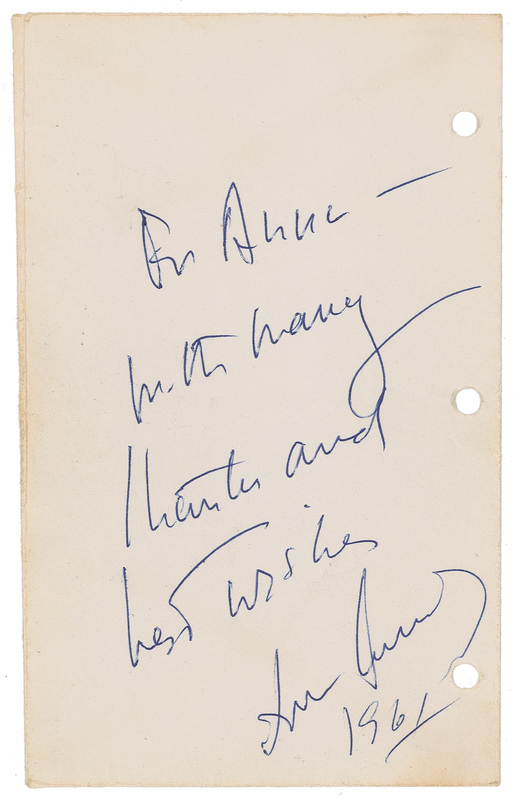 For Anne —
with many
thanks and
best wishes
1961